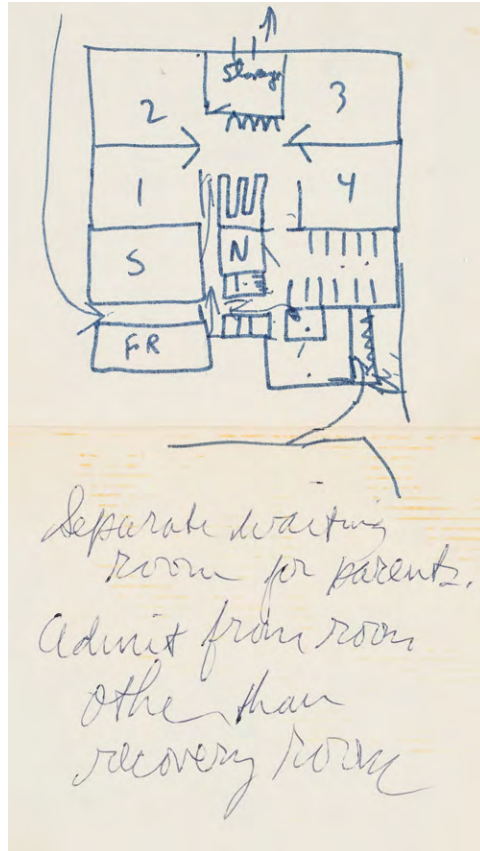 Storage
2
3
1
4
S
N
FR
Separate waiting
room for parents.
Admit from room
other than
recovery room